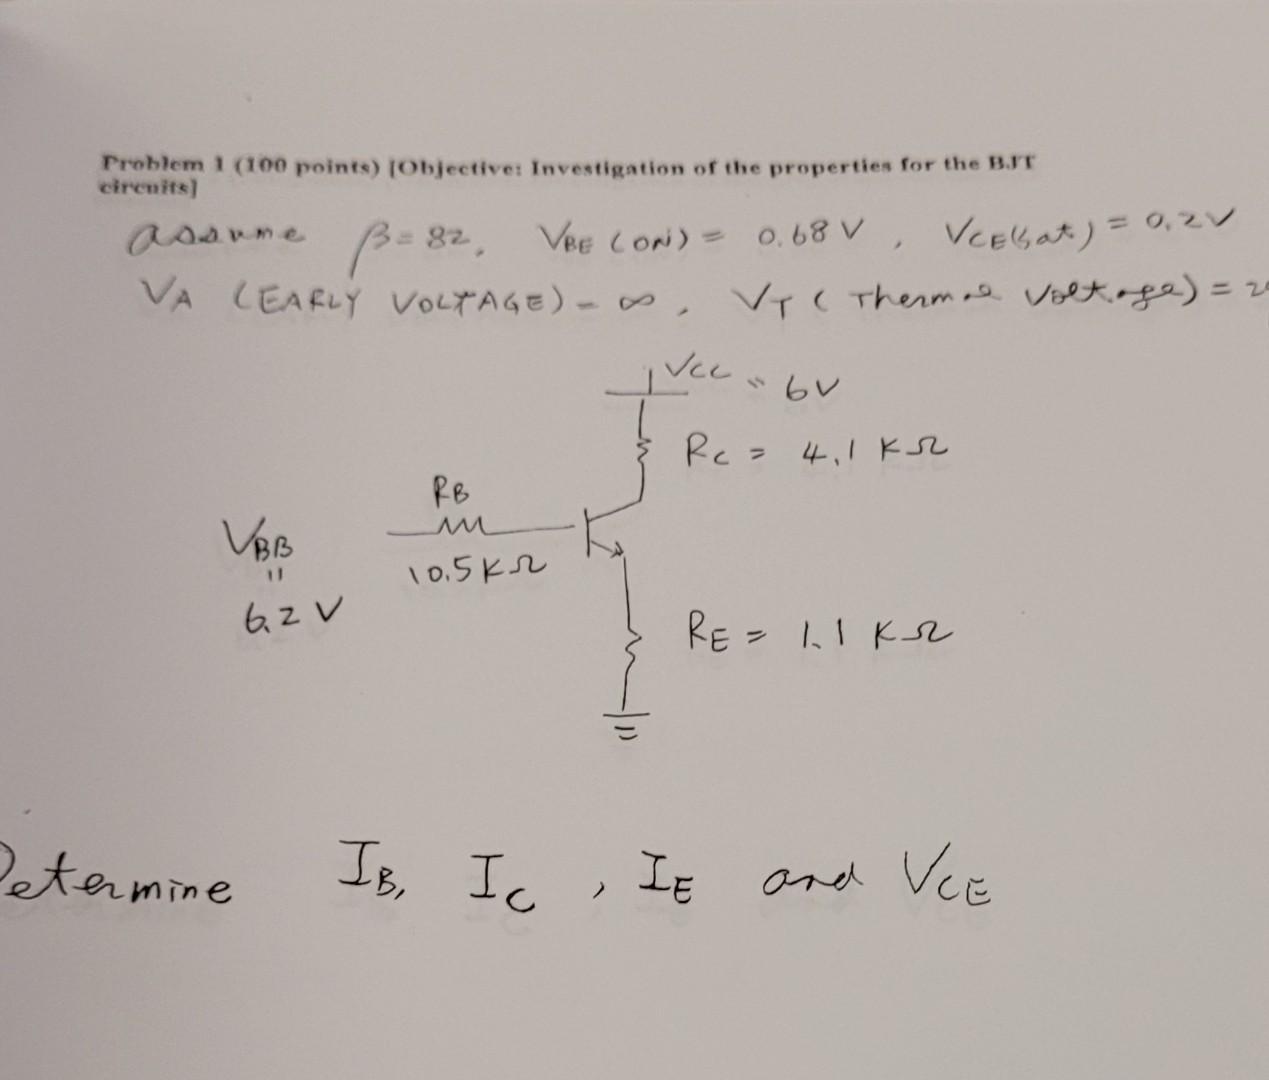 Problem 1 (100 points) [Objective: Investigation of the properties for the BJT
circuits]
assume β = 82, VBE (ON) = 0.68 V, VCE(sat) = 0.2V
VA (EARLY VOLTAGE) = ∞, VT (Thermal Voltage) =
VCC = 6V
RC = 4.1 KΩ
RB
VBB
10.5 KΩ
=
6.2 V
RE = 1.1 KΩ
Determine IB, IC, IE and VCE